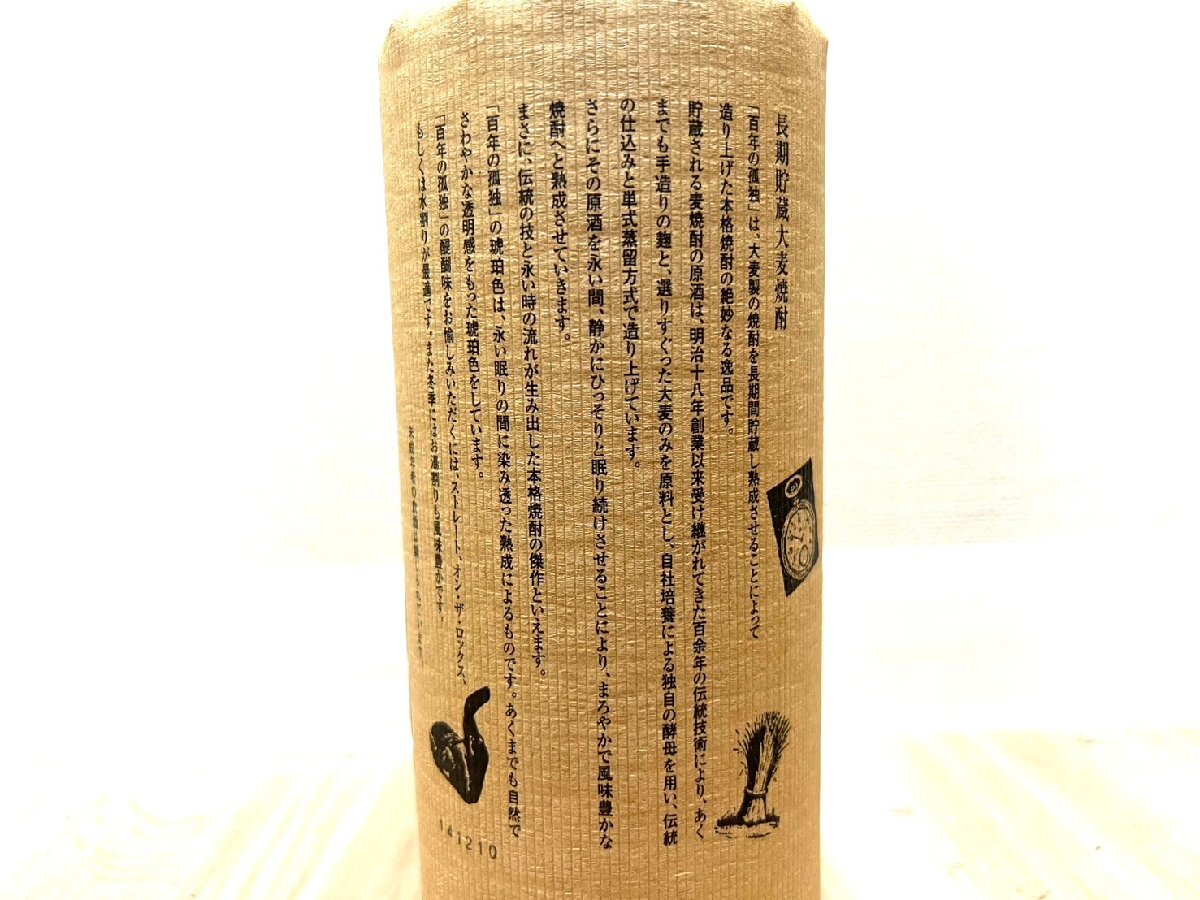 長期貯蔵大麦焼酎
「百年の孤独」は、大麦製の焼酎を長期間貯蔵し熟成させることによって
造り上げた本格焼酎の絶妙なる逸品です。
貯蔵される麦焼酎の原酒は、明治十八年創業以来受け継がれてきた百余年の伝統技術により、あく
までも手造りの麹と、選りすぐった大麦のみを原料とし、自社培養による独自の酵母を用い、伝統
の仕込みと単式蒸留方式で造り上げています。
さらにその原酒を永い間、静かにひっそりと眠り続けさせることにより、まろやかで風味豊かな
焼酎へと熟成させていきます。
まさに、伝統の技と永い時の流れが生み出した本格焼酎の傑作といえます。
「百年の孤独」の琥珀色は、永い眠りの間に染み透った熟成によるものです。あくまでも自然で
さわやかな透明感をもった琥珀色をしています。
「百年の孤独」の醍醐味をお愉しみいただくには、ストレート、オン・ザ・ロックス、
もしくは水割りが最適です。また冬季にはお湯割りも風味豊かです。
141210